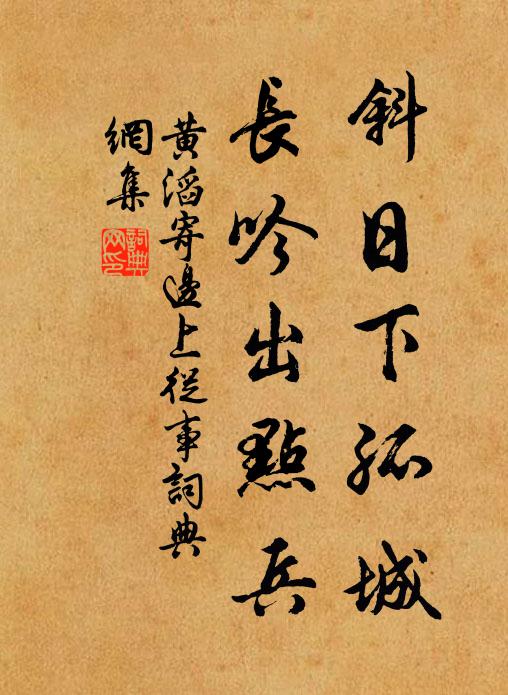 斜日下孤城
長吟出點兵
黃滔寄邊上從事詞典
網集
詞典
网印